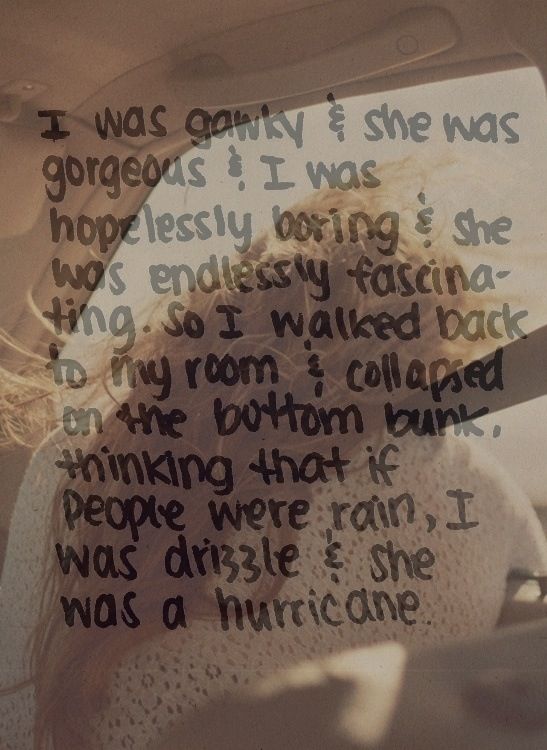 I was gawky & she was
gorgeous & I was
hopelessly boring & she
was endlessly fascina-
ting. So I walked back
to my room & collapsed
on the bottom bunk,
thinking that if
people were rain, I
was drizzle & she
was a hurricane.